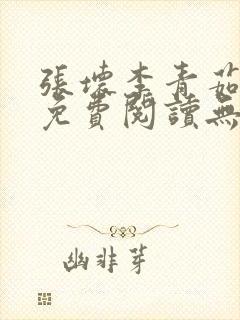 張壞李青茹
免費閱讀無
幽非芽